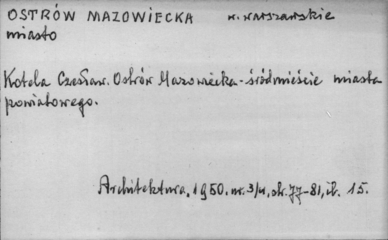 OSTRÓW MAZOWIECKA w. warszawskie
miasto
Kotela Czesław. Ostrów Mazowiecka - śródmieście miasta
powiatowego.
Architektura, 1950. nr. 3/4, str. 77-81, il. 15.